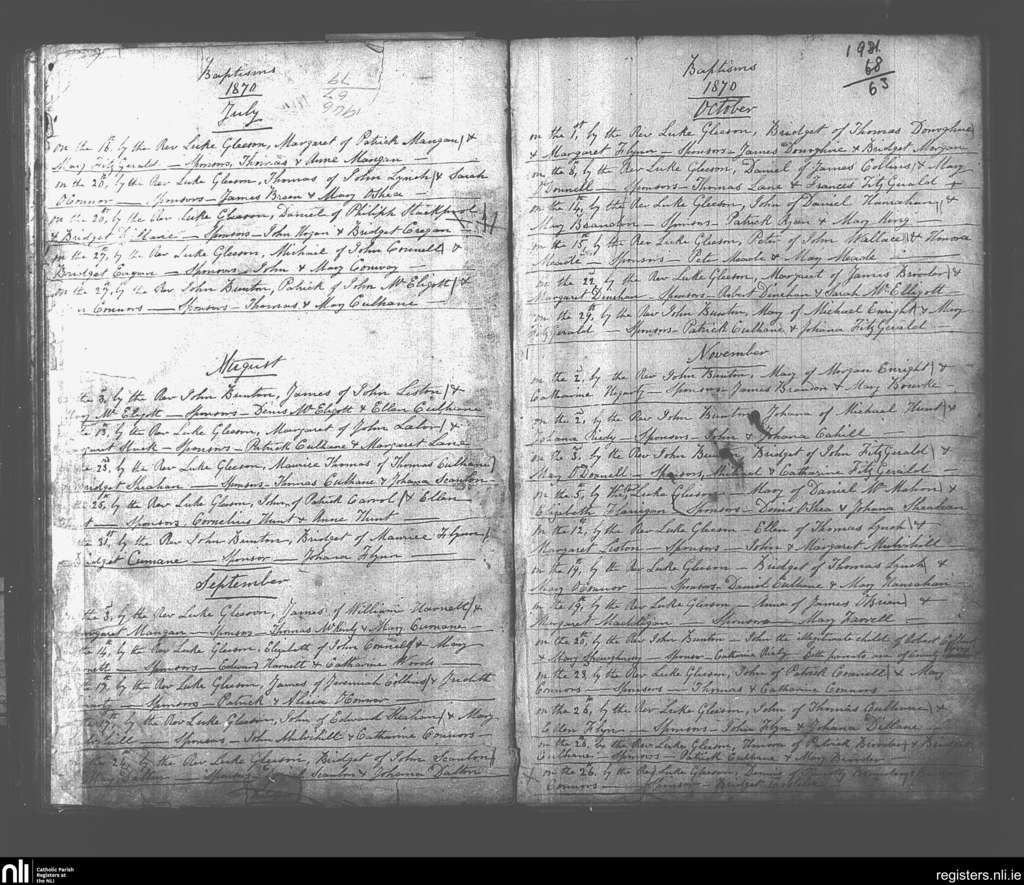 Baptisms
1870
July
on the 16th, by the Rev Luke Gleeson, Margaret of Patrick Mangan &
Mary FitzGerald — Sponsors, Thomas & Anne Mangan
on the 20th, by the Rev Luke Gleeson, Thomas of John Lynch & Sarah
O'Connor — Sponsors — James Breen & Mary O'Shea
on the by the Rev Luke Gleeson, Daniel of Philip Stackpool
& Bridget — Sponsors — John Hogan & Bridget Cregan
on the 27, by the Rev Luke Gleeson, Michael of John Connell &
Bridget — Sponsors — John & Mary Conway
on the 29, by the Rev John Bunton, Patrick of John McEligott &
Connors — Sponsors — Thomas & Mary Culhane
August
the 3, by the Rev John Bunton, James of John Liston &
McEligott — Sponsors — Denis McEligott & Ellen Culhane
the 13, by the Rev Luke Gleeson, Margaret of John Lalor &
— Sponsors — Patrick Culhane & Margaret Lane
23, by the Rev Luke Gleeson, Maurice Thomas of Thomas Culhane
Bridget Sheahan — Sponsors — Thomas Culhane & Johana Scanlon
the 25, by the Rev Luke Gleeson, John of Patrick Carrol & Ellen
— Sponsors, Cornelius Hunt & Anne Hunt
the by the Rev John Bunton, Bridget of Maurice Flynn
Bridget Cunane — Sponsor — Johana Flynn
September
the by the Rev Luke Gleeson, James of William Harnett &
Margaret Mangan — Sponsors — Thomas & Mary Cunane
the 14, by the Rev Luke Gleeson, Elizabeth of John Connell & Mary
— Sponsors — Edward Harnett & Catharine Woods
the 17, by the Rev Luke Gleeson, James of Jeremiah Collins & Judith
— Sponsors — Patrick & Alicia
the 17, by the Rev Luke Gleeson, John of Edward Sheahan & Mary
— Sponsors — John Mulvihill & Catharine Connors
the 26, by the Rev Luke Gleeson, Bridget of John Scanlon
Dalton — Scanlon & Johana Dalton
1931
68
63
Baptisms
1870
October
on the 1st, by the Rev Luke Gleeson, Bridget of Thomas Donoghue
& Margaret Flynn — Sponsors — James Donoghue & Bridget Mangan
on the 8, by the Rev Luke Gleeson, Daniel of James Collins & Mary
O'Connell — Sponsors — Thomas Lane & Frances FitzGerald
on the 14, by the Rev Luke Gleeson, John of Daniel Hanrahan &
Mary Brandon — Sponsors — Patrick Ryan & Mary
on the 15, by the Rev Luke Gleeson, Peter of John Wallace & Honora
Meade — Sponsors — Peter Meade & Mary Meade
on the 22, by the Rev Luke Gleeson, Margaret of James &
Margaret Dinehan — Sponsors — Robert Dinehan & Sarah McElligott
on the 29, by the Rev John Bunton, Mary of Michael Enright & Mary
FitzGerald — Sponsors — Patrick Culhane & Johana FitzGerald
November
on the 2, by the Rev John Bunton, Mary of Morgan Enright &
Catharine Hegarty — Sponsors — James Brandon & Mary Bourke
on the 2, by the Rev John Bunton, Johana of Michael Hunt &
Johana — Sponsors — John & Johana Cahill
on the 3, by the Rev John Bunton, Bridget of John FitzGerald &
Mary O'Donnell — Sponsors, Michael & Catharine FitzGerald
on the 5, by the Rev Luke Gleeson — Mary of Daniel McMahon &
Elizabeth Flanigan — Sponsors — Denis O'Shea & Johana Sheahan
on the 12, by the Rev Luke Gleeson — Ellen of Thomas Lynch &
Margaret Liston — Sponsors — John & Margaret Mulvihill
on the 19, by the Rev Luke Gleeson — Bridget of Thomas Lynch &
Mary O'Connor — Sponsors — Daniel Culhane & Mary Hanrahan
on the 19, by the Rev Luke Gleeson — Anne of James O'Brien &
Margaret Madigan — Sponsors — Mary
on the 20, by the Rev John Bunton — John the illegitimate child of Robert
& Mary Shaughnessy — Sponsor — Catharine
on the 23, by the Rev Luke Gleeson, John of Patrick Connell & Mary
Connors — Sponsors — Thomas & Catharine Connors
on the 26, by the Rev Luke Gleeson, John of Thomas Culhane &
Ellen Flynn — Sponsors — John Flynn & Johana
on the 26, by the Rev Luke Gleeson, Honora of Patrick & Bridget
Culhane — Sponsors — Patrick Culhane & Mary
on the 26, by the Rev Luke Gleeson,
Connors — Sponsor — Bridget
nli
Catholic Parish
Registers at
the NLI
registers.nli.ie